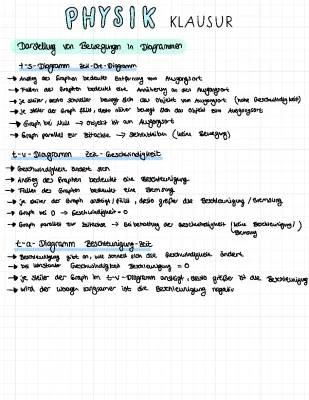 PHYSIK KLAUSUR
Darstellung von Bewegungen in Diagrammen
t-s-Diagramm Zeit-Ort-Diagramm
→ Anstieg des Graphen bedeutet Entfernung vom Ausgangsort
→ Fallen des Graphen bedeutet eine Annäherung an den Ausgangsort
→ je steiler, desto schneller bewegt sich das Objekt vom Ausgangsort (hohe Geschwindigkeit)
→ je steiler der Graph fällt, desto näher bewegt sich das Objekt zum Ausgangsort
→ Graph bei Null → Objekt ist am Ausgangsort
→ Graph parallel zur Zeitachse → Stehenbleiben (keine Bewegung)
t-v-Diagramm Zeit-Geschwindigkeit
→ Geschwindigkeit ändert sich
→ Anstieg des Graphen bedeutet eine Beschleunigung
→ Fallen des Graphen bedeutet eine Bremsung
→ je steiler der Graph ansteigt/fällt, desto größer die Beschleunigung/Bremsung
→ Graph bei 0 → Geschwindigkeit = 0
→ Graph parallel zur Zeitachse → Beibehaltung der Geschwindigkeit (keine Beschleunigung/Bremsung)
t-a-Diagramm Beschleunigung-Zeit
→ Beschleunigung gibt an, wie schnell sich die Geschwindigkeit ändert
→ bei konstanter Geschwindigkeit Beschleunigung = 0
→ je steiler der Graph im t-v-Diagramm ansteigt, desto größer ist die Beschleunigung
→ wird der Wagen langsamer ist die Beschleunigung negativ